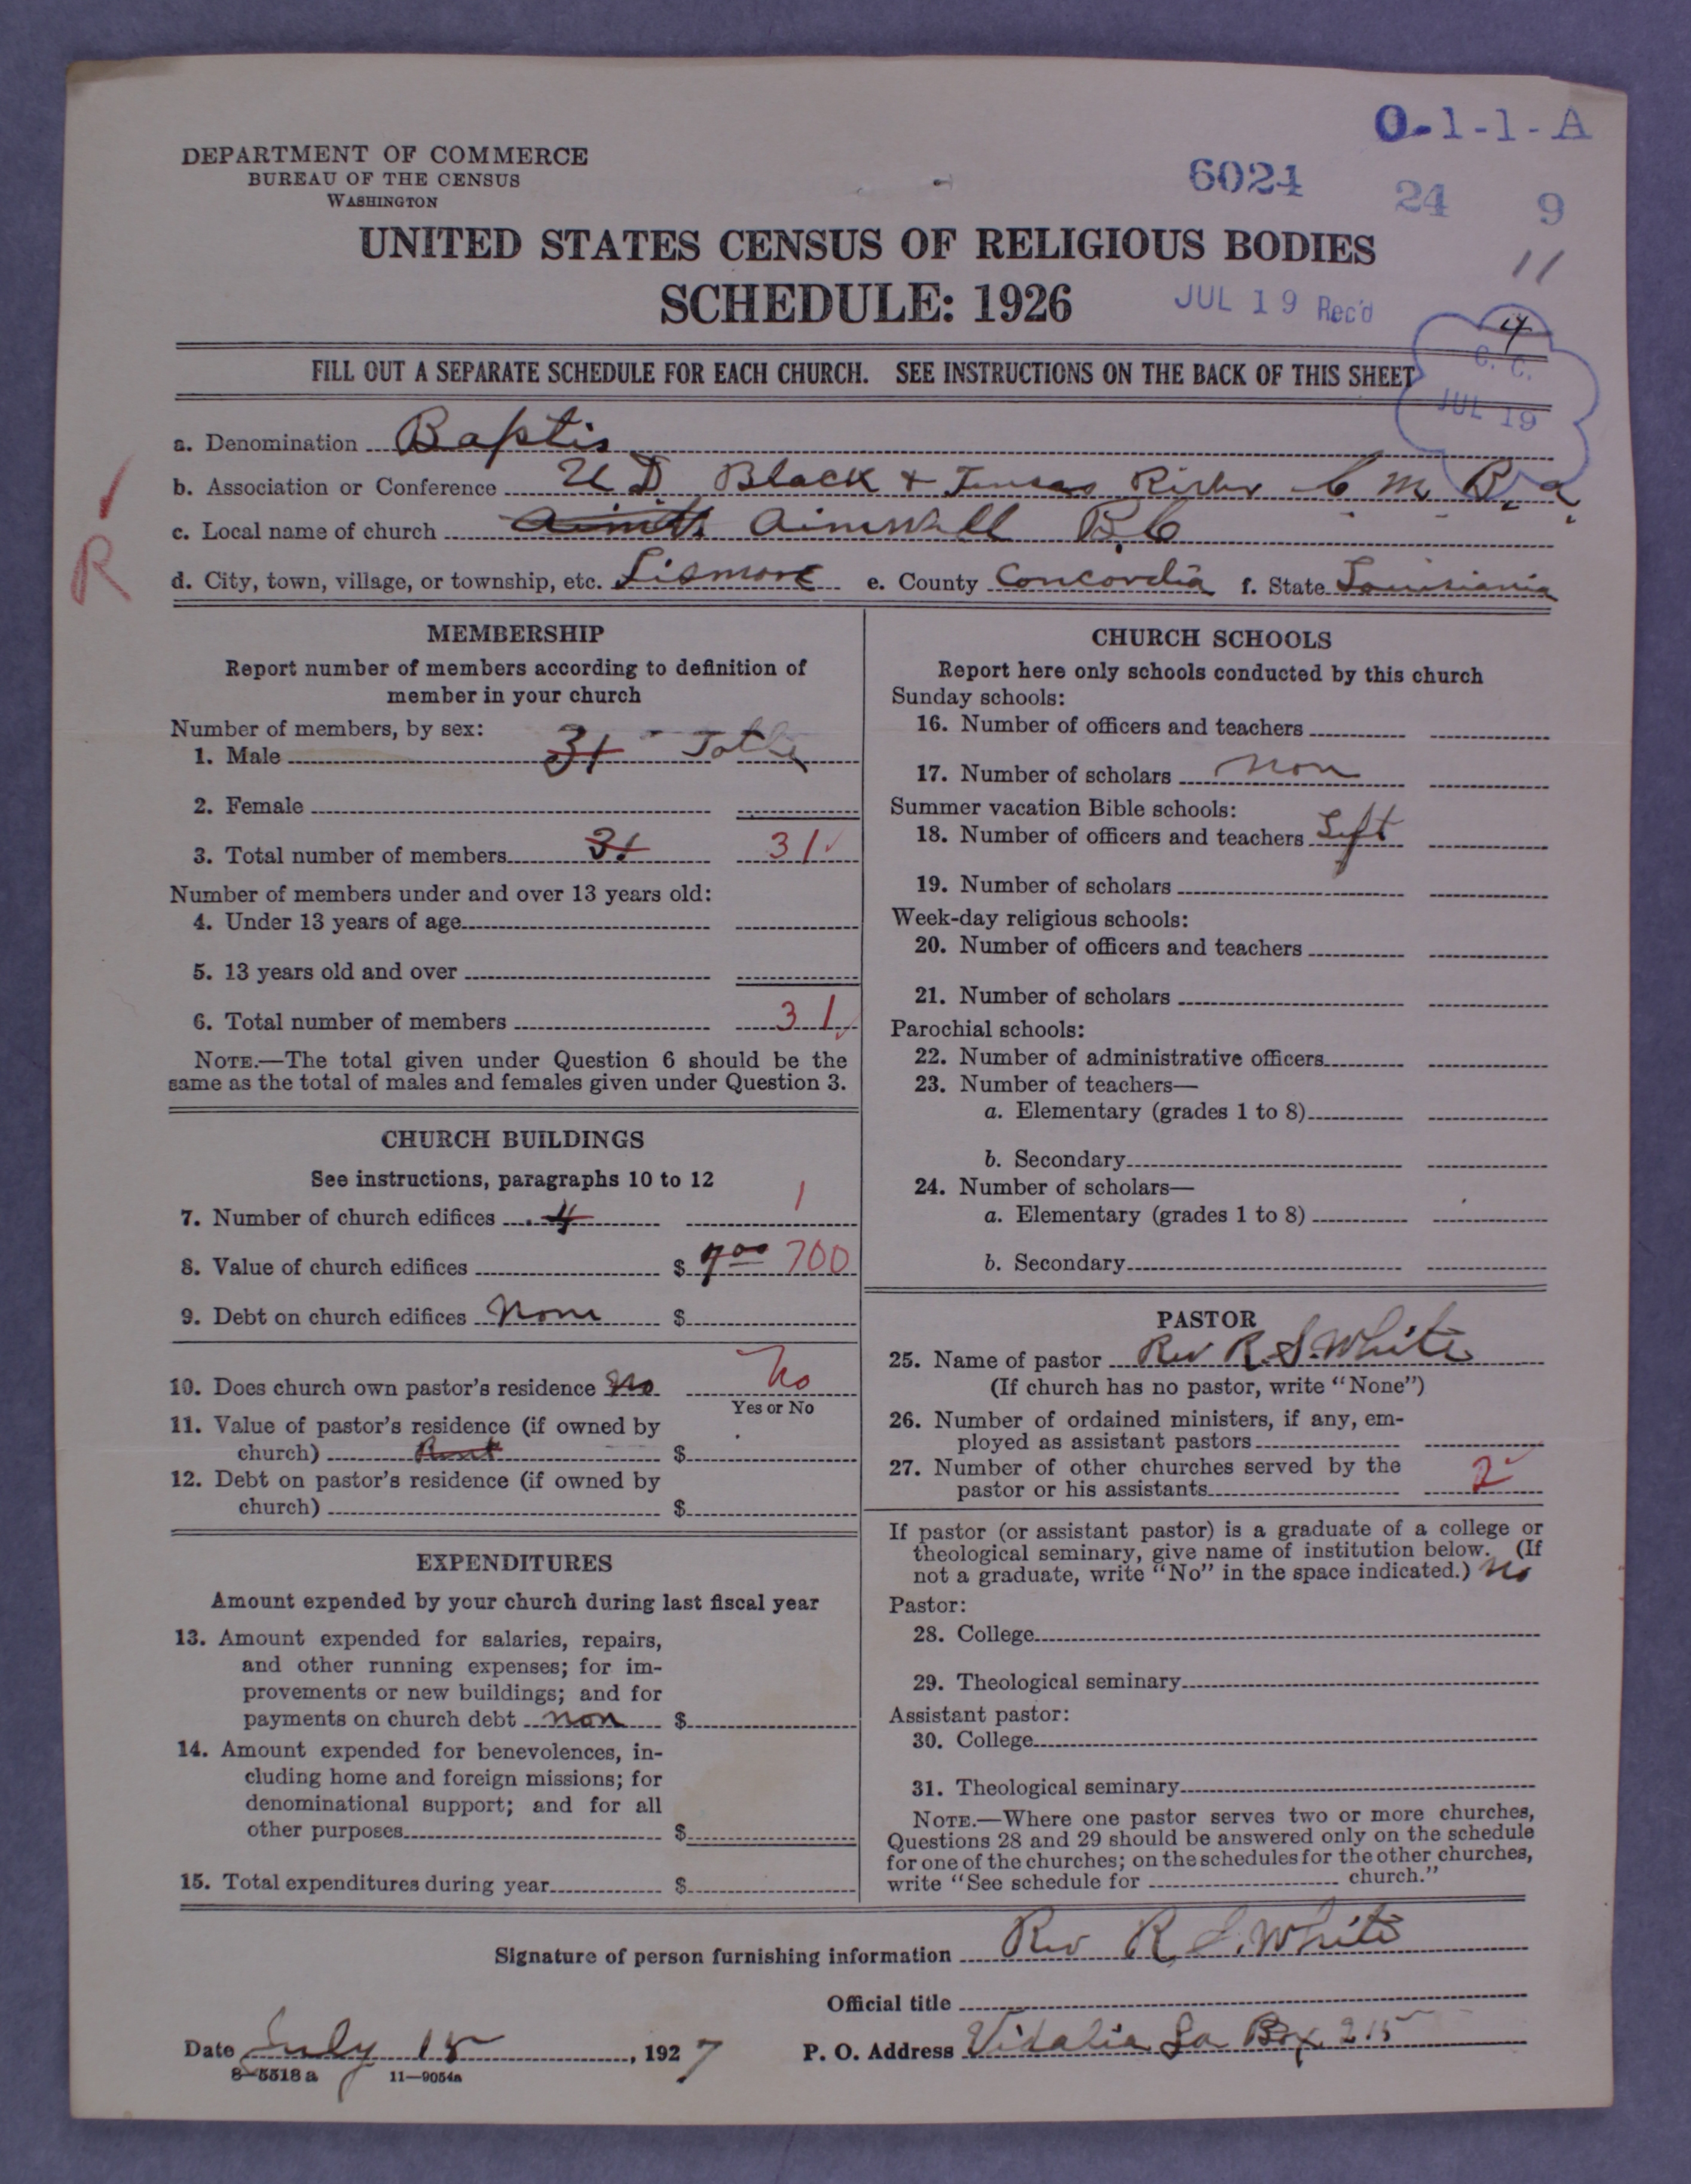 O-1-1-A
DEPARTMENT OF COMMERCE
BUREAU OF THE CENSUS
WASHINGTON
6024
24 9
11
UNITED STATES CENSUS OF RELIGIOUS BODIES
SCHEDULE: 1926
JUL 19 Rec'd
4
C. C.
JUL 19
FILL OUT A SEPARATE SCHEDULE FOR EACH CHURCH. SEE INSTRUCTIONS ON THE BACK OF THIS SHEET
a. Denomination Baptis
b. Association or Conference Black + Tensas River C M B. a.
c. Local name of church Aimwell B.C
d. City, town, village, or township, etc. Lismore e. County Concordia f. State Louisiania
R
MEMBERSHIP
Report number of members according to definition of
member in your church
Number of members, by sex:
1. Male 31
2. Female
3. Total number of members 31 31
Number of members under and over 13 years old:
4. Under 13 years of age
5. 13 years old and over
6. Total number of members 31
NOTE.—The total given under Question 6 should be the
same as the total of males and females given under Question 3.
CHURCH BUILDINGS
See instructions, paragraphs 10 to 12
7. Number of church edifices 4 1
8. Value of church edifices $ 700 700
9. Debt on church edifices None $
10. Does church own pastor's residence No No
Yes or No
11. Value of pastor's residence (if owned by
church) Rent $
12. Debt on pastor's residence (if owned by
church) $
EXPENDITURES
Amount expended by your church during last fiscal year
13. Amount expended for salaries, repairs,
and other running expenses; for im-
provements or new buildings; and for
payments on church debt non $
14. Amount expended for benevolences, in-
cluding home and foreign missions; for
denominational support; and for all
other purposes $
15. Total expenditures during year $
CHURCH SCHOOLS
Report here only schools conducted by this church
Sunday schools:
16. Number of officers and teachers
17. Number of scholars non
Summer vacation Bible schools:
18. Number of officers and teachers Left
19. Number of scholars
Week-day religious schools:
20. Number of officers and teachers
21. Number of scholars
Parochial schools:
22. Number of administrative officers
23. Number of teachers—
a. Elementary (grades 1 to 8)
b. Secondary
24. Number of scholars—
a. Elementary (grades 1 to 8)
b. Secondary
PASTOR
25. Name of pastor Rev R. S. White
(If church has no pastor, write "None")
26. Number of ordained ministers, if any, em-
ployed as assistant pastors
27. Number of other churches served by the
pastor or his assistants 2
If pastor (or assistant pastor) is a graduate of a college or
theological seminary, give name of institution below. (If
not a graduate, write "No" in the space indicated.) No
Pastor:
28. College
29. Theological seminary
Assistant pastor:
30. College
31. Theological seminary
NOTE.—Where one pastor serves two or more churches,
Questions 28 and 29 should be answered only on the schedule
for one of the churches; on the schedules for the other churches,
write "See schedule for church."
Signature of person furnishing information Rev R. S. White
Official title
Date July 15, 1927 P. O. Address Vidalia La Box 215
8-5518a 11—9054a